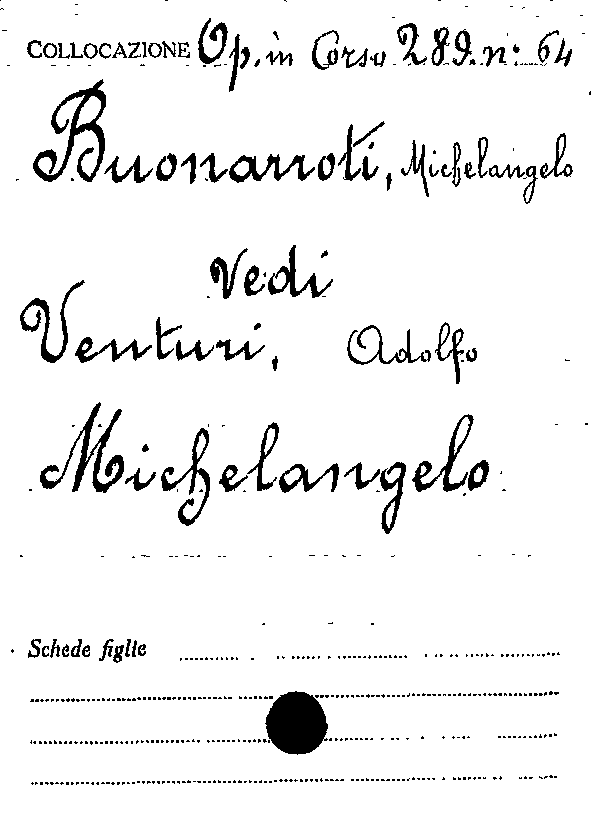 COLLOCAZIONE Op. in Corso 289. n: 64
Buonarroti, Michelangelo
Vedi
Venturi, Adolfo
Michelangelo
Schede figlie